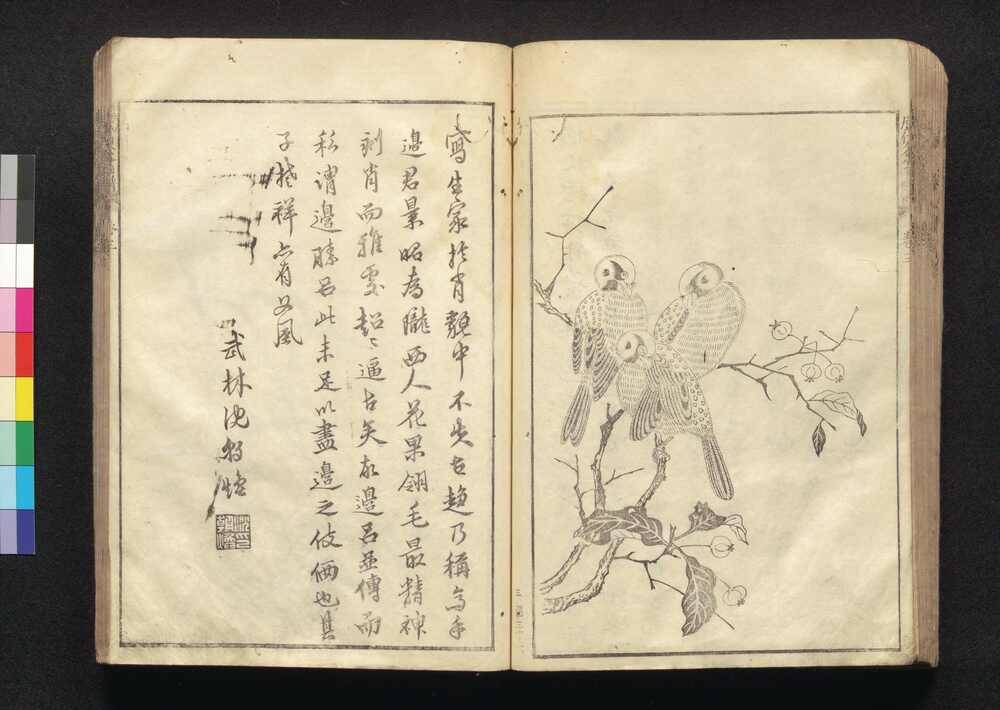 寫生家於肖貌中不失古趣乃稱高手
邊君景昭為隴西人花果翎毛最精神
刻肖而雅致超〻逼古矣故邊呂並傳而
私謂邊勝呂此未足以盡邊之伎倆也其
子楚祥亦有父風
武林沈